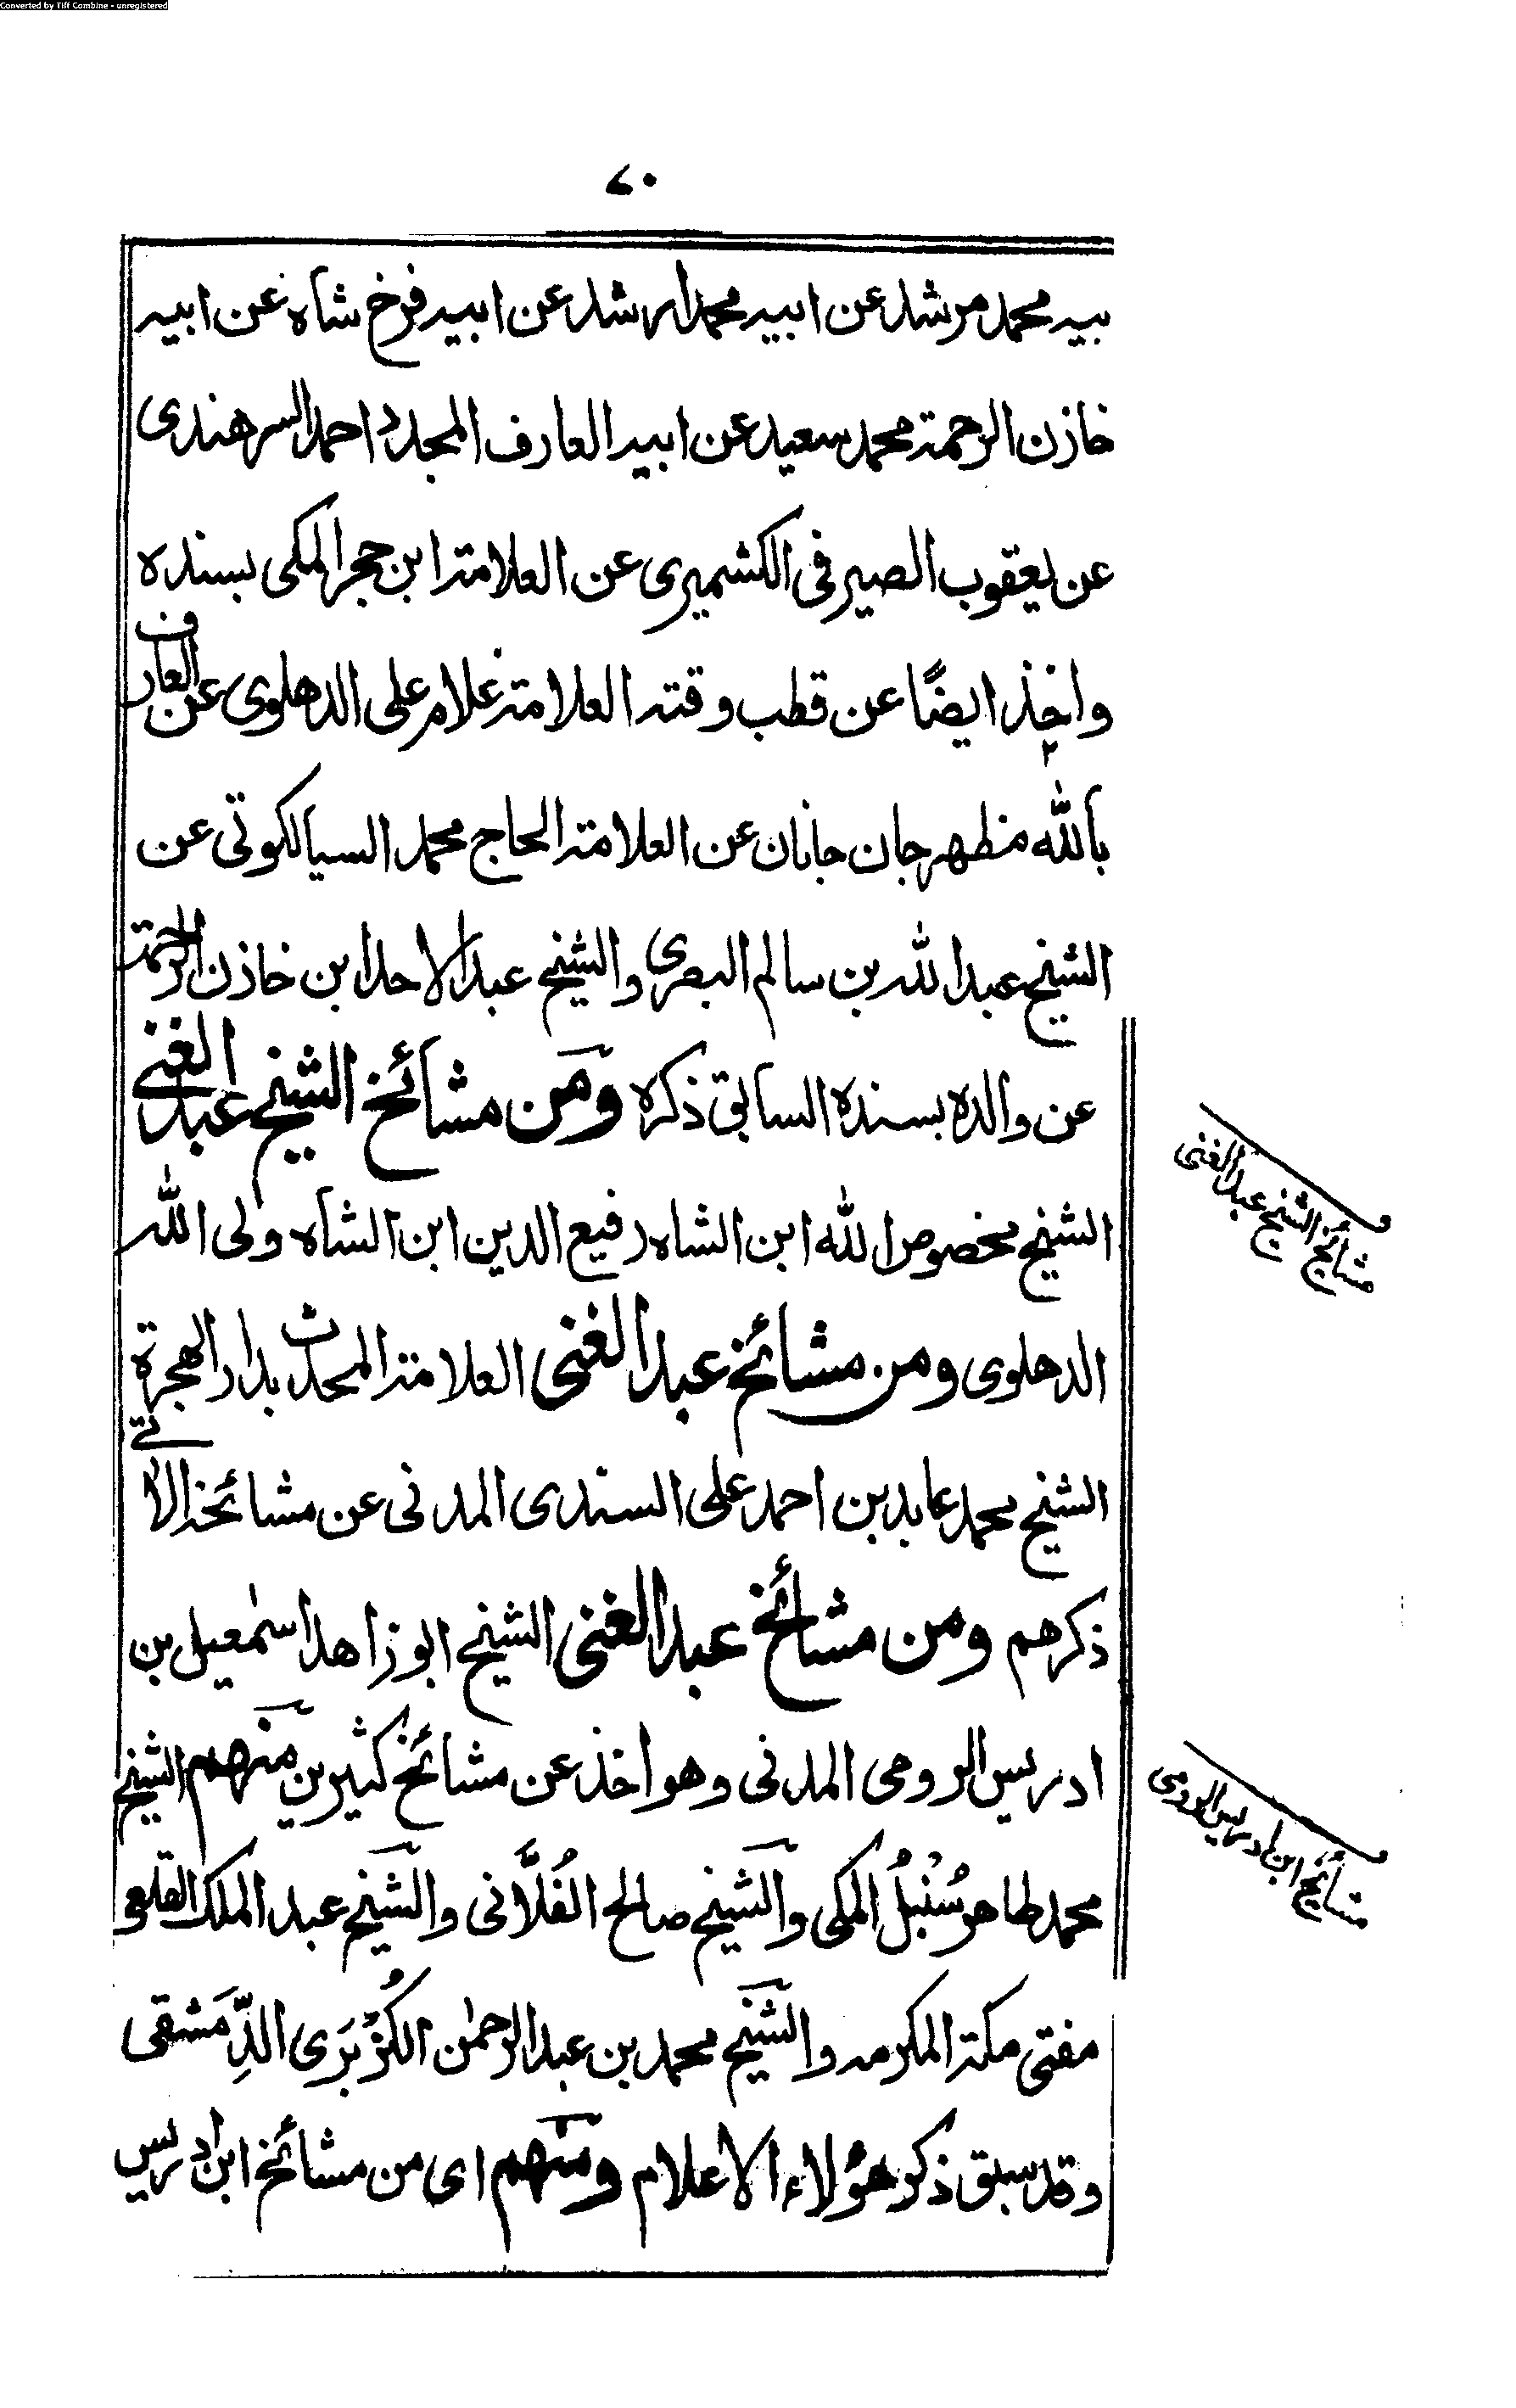 Converted by Tiff Combine - unregistered
۷۰
بيه محمد مرشد عن ابيه محمد ارشد عن ابيه فرخ شاه عن ابيه
خازن الرحمة محمد سعيد عن ابيه العارف المجدد احمد السرهندى
عن يعقوب الصيرفى الكشميرى عن العلامة ابن حجر المكى بسنده
واخذ ايضًا عن قطب وقته العلامة غلام على الدهلوى عن العارف
۲
بالله مظهر جان جانان عن العلامة الحاج محمد السيالكوتى عن
الشيخ عبد الله بن سالم البصرى والشيخ عبد الاحد ابن خازن الرحمة
عن والده بسنده السابق ذكره ومن مشائخ الشيخ عبد الغنى
الشيخ مخصوص الله ابن الشاه رفيع الدين ابن الشاه ولى الله
الدهلوى ومن مشائخ عبد الغنى العلامة المحدث بدار الهجرة
الشيخ محمد عابد بن احمد على السندى المدنى عن مشائخه الاتى
ذكرهم ومن مشائخ عبد الغنى الشيخ ابو زاهد اسمٰعيل بن
ادريس الرومى المدنى وهو اخذ عن مشائخ كثيرين منهم الشيخ
محمد طاهر سُنْبُلُ المكى والشيخ صالح الفُلَّانى والشيخ عبد الملك القلعى
مفتى مكة المكرمه والشيخ محمد بن عبد الرحمٰن الكُزْبَرَى الدِّمَشقى
وقد سبق ذكر هؤلاء الاعلام ومنهم اى من مشائخ ابن ادريس
مشائخ الشيخ عبد الغنى
مشائخ ابن ادريس الرومى